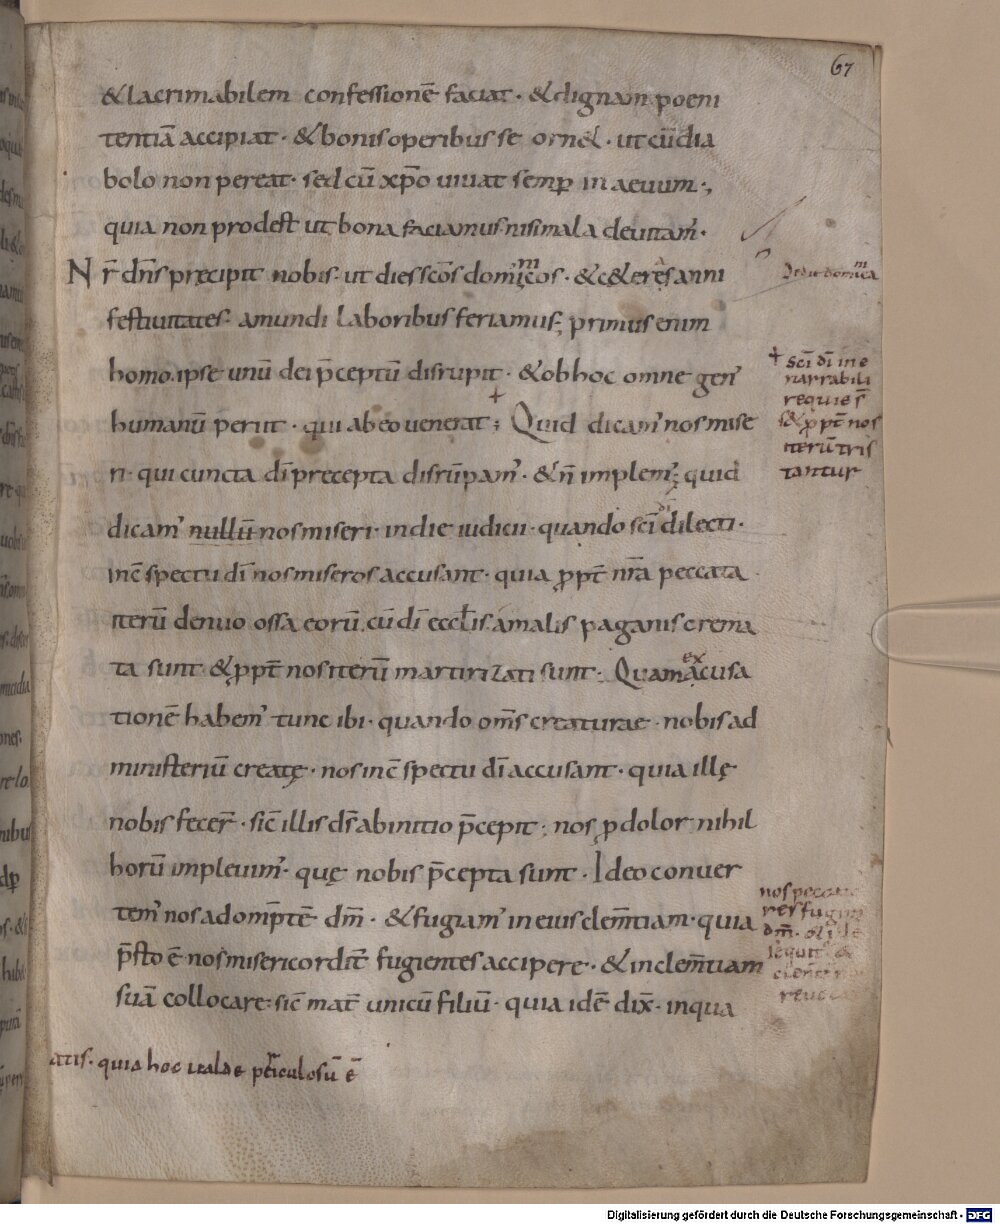 67
&lacrimabilem confessionē faciat · &dignam poeni
tentiā accipiat · &bonis operibus se orn& · ut cū dia
bolo non pereat · sed cū xp̄o uiuat semp̱ in aeuum ·,
quia non prodest ut bona faciamus nisi mala deuitam̄ ·
Nr̄ dn̄s precipit nobis · ut dies sc̄os dominicos · &c&eres anni
In die dominica
festiuitates · a mundi laboribus feriamus; primus enim
homo ipse unū dei p̄ceptū disrupit · &ob hoc omne gen̄
humanū periit · qui ab eo uenerat +; Quid dicam̄ nos mise
+ sc̄i dī in e
narrabili
requie s̄
& ꝓpt̄ nos
iterū tris
tantur
ri · qui cuncta dī precepta disrūpam̄ · &n̄ implem̄; quid
dicam̄ nullū nos miseri · in die iudicii · quando sc̄i dī dilecti ·
in c̄spectu dī nos miseros accusant · quia ꝓpt̄ nr̄a peccata
iterū denuo ossa eorū cū dī eccl̄is a malis paganis crema
ta sunt &ꝓpt̄ nos iterū martirizati sunt · Quam excusa
tionē habem̄ tunc ibi · quando om̄s creaturae · nobis ad
ministeriū creatę · nos in c̄spectu dī accusant · quia illę
nobis fecer̄ · sic̄ illis ds̄ ab initio p̄cepit; nos ꝓ dolor nihil
horū impleuim̄ · quę nobis p̄cepta sunt · Ideo conuer
tem̄ nos ad omp̄tē dm̄ · &fugiam̄ in eius clem̄tiam · quia
nos
dm̄
p̄sto ē nos misericordit̄ fugientes accipere · &in clem̄tiam
suā collocare · sic̄ mat̄ unicū filiū · quia idē dix̄ · inqua
atis · quia hoc periculosū ē
Digitalisierung gefördert durch die Deutsche Forschungsgemeinschaft - DFG